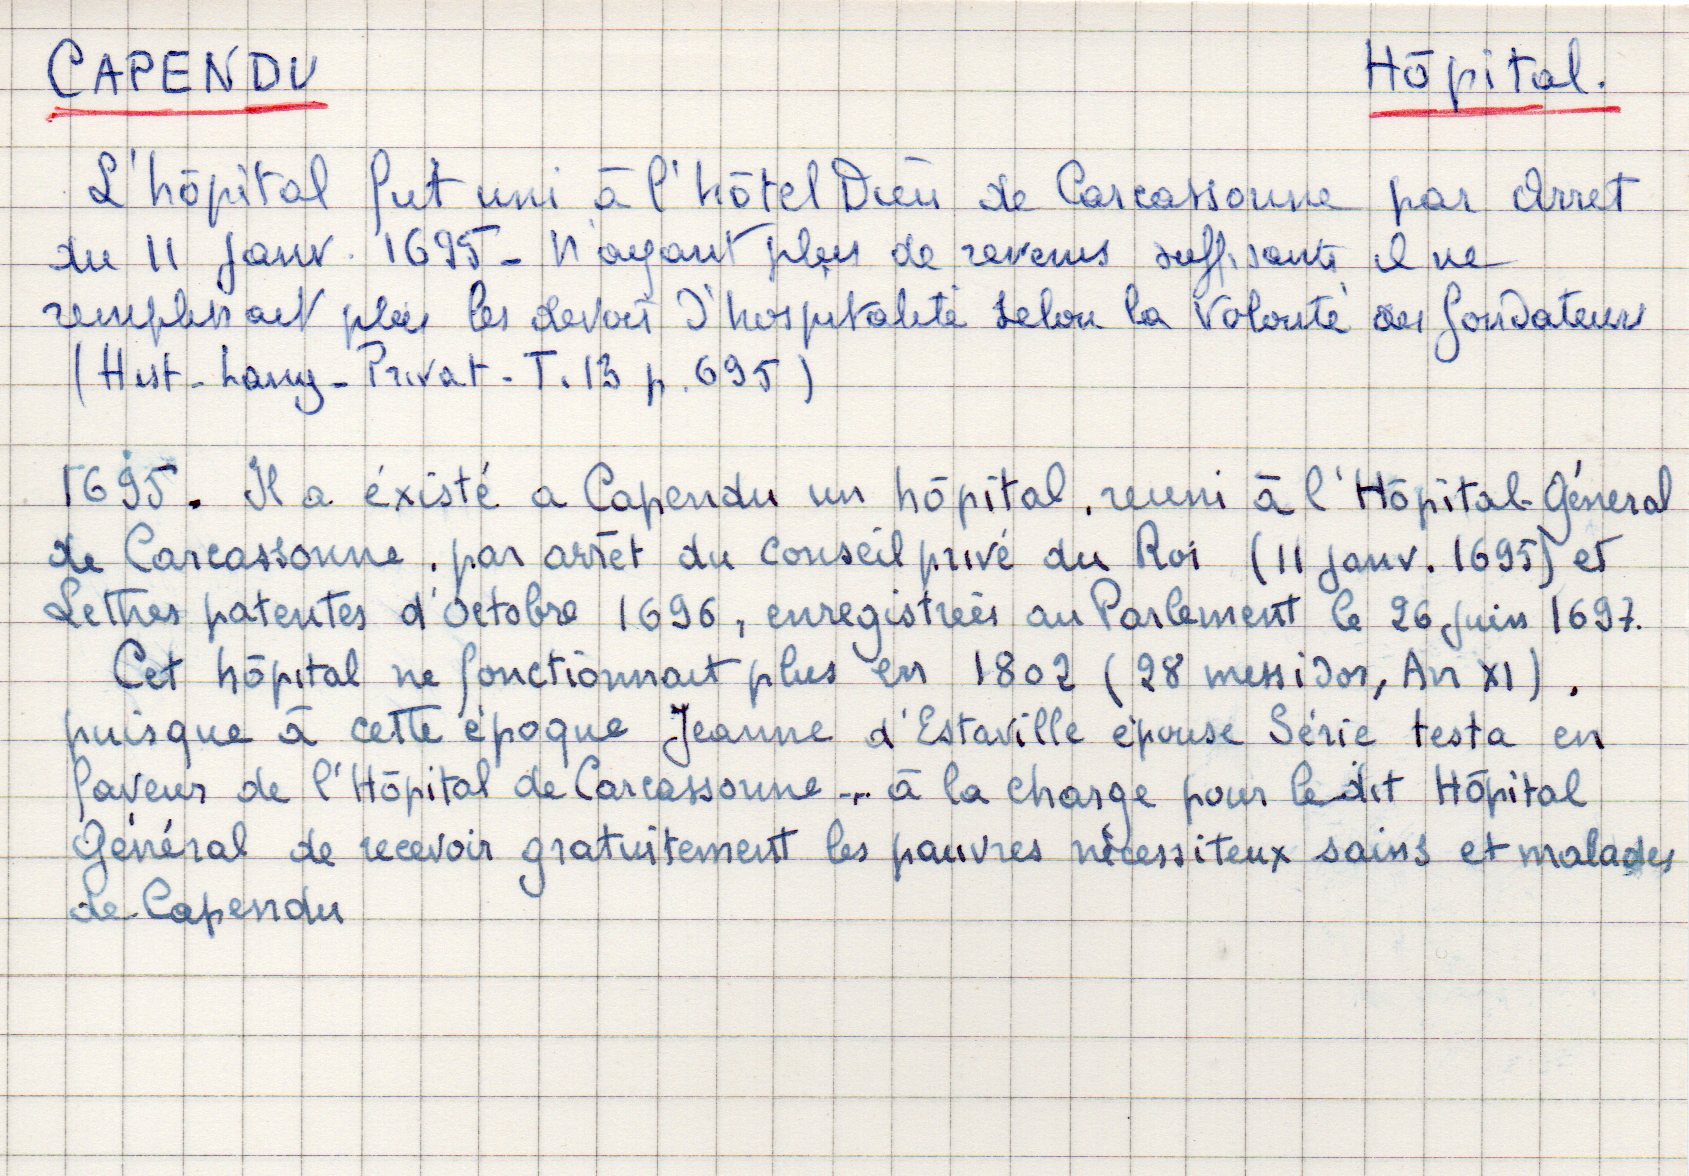 CAPENDU Hôpital.
L'hôpital fut uni à l'hôtel Dieu de Carcassonne par Arret
du 11 Janv. 1695 - N'ayant plus de revenus suffisants il ne
remplissait plus les devoirs d'hospitalité selon la volonté des fondateurs
(Hist - Lang - Privat - T. 13 p. 695)
1695. Il a éxisté a Capendu un hôpital, reuni à l'Hôpital-Géneral
de Carcassonne, par arrêt du conseil privé du Roi (11 janv. 1695) et
Lettres patentes d'octobre 1696, enregistrées au Parlement le 26 juin 1697.
Cet hôpital ne fonctionnait plus en 1802 (28 messidor, An XI),
puisque à cette époque Jeanne d'Estaville épouse Série testa en
faveur de l'Hôpital de Carcassonne -.. à la charge pour le dit Hôpital
Général de recevoir gratuitement les pauvres nécessiteux sains et malades
de Capendu